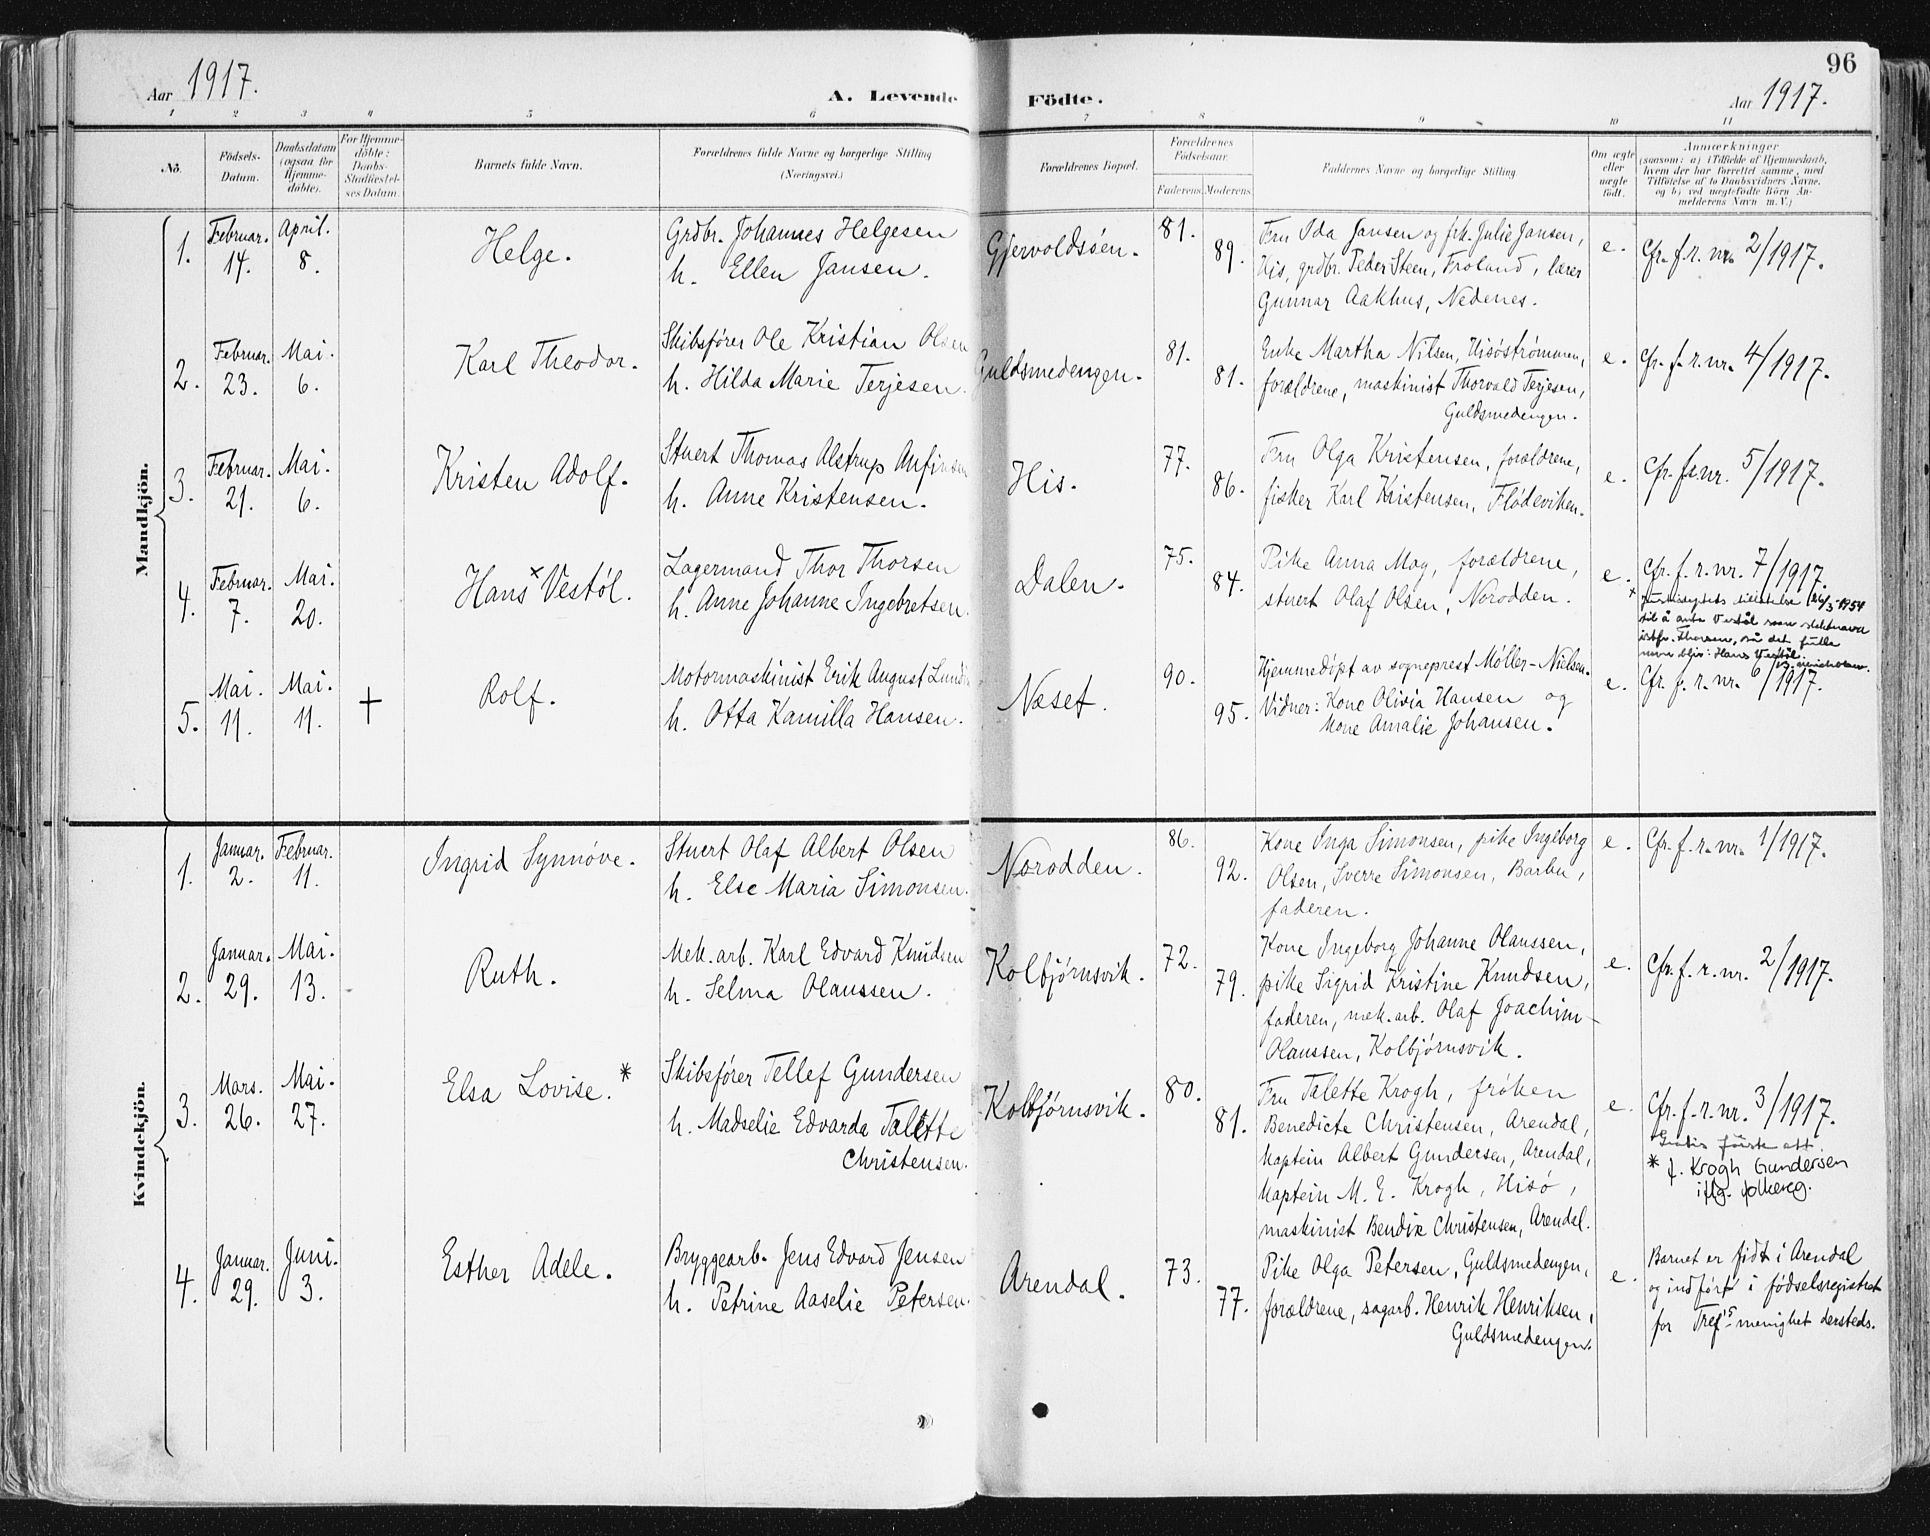 96
Aar 1917.
A. Levende Födte.
Aar 1917.
1 2 3 4 5 6 7 8 9 10 11
No.
Födsels-
Datum.
Daabsdatum
(ogsaa for
Hjemme-
döbte).
For Hjemme-
döbte:
Daabs-
Stadfæstel-
ses Datum.
Barnets fulde Navn.
Forældrenes fulde Navne og borgerlige Stilling
(Næringsvei.)
Forældrenes Bopæl.
Forældrenes
Födselsaar.
Faderens. Moderens.
Faddernes Navne og borgerlige Stilling
Om ægte
eller
uægte
født.
Anmærkninger
(saasom: a) i Tilfælde af Hjemmedaab,
hvem der har forrettet samme, med
Tilföielse af to Daabsvidners Navne,
og b) ved uægtefödte Börn An-
melderens Navn m. V.)
Mandkjön.
1.
Februar.
14.
April.
8.
Helge.
Grdbr. Johannes Helgesen
h. Ellen Jansen.
Gjervoldsöen.
81.
89.
Fru Ida Jansen og frk. Julie Jansen,
His, grdbr. Peder Steen, Froland, lærer
Gunnar Aakhus, Nedenes.
e.
Cfr. f. r. nr. 2/1917.
2.
Februar.
23.
Mai.
6.
Karl Theodor.
Skibsfører Ole Kristian Olsen
h. Hilda Marie Terjesen.
Guldsmedengen.
81.
81.
Enke Martha Nilsen, Hisöströmmen,
forældrene, maskinist Thorvald Terjesen,
Guldsmedengen.
e.
Cfr. f. r. nr. 4/1917.
3.
Februar.
21.
Mai.
6.
Kristen Adolf.
Stuert Thomas Alstrup Anfinsen
h. Anne Kristensen.
His.
77.
86.
Fru Olga Kristensen, forældrene,
fisker Karl Kristensen, Flödeviken.
e.
Cfr. f. r. nr. 5/1917.
4.
Februar.
7.
Mai.
20.
Hans x Vestöl.
Lagermand Thor Thorsen
h. Anne Johanne Ingebretsen.
Dalen.
75.
84.
Pike Anna May, forældrene,
stuert Olaf Olsen, Norodden.
e.
Cfr. f. r. nr. 7/1917.
x 26/3-1954
til å anta Vestøl som slektsnavn
istf. Thorsen, så det fulle
navn blir: Hans Vestøl.
5.
Mai.
11.
Mai.
11.
+
Rolf.
Motormaskinist Erik August Lundin
h. Otta Kamilla Hansen.
Næset.
90.
95.
Hjemmedöpt av sogneprest Møller-Nielsen.
Vidner: Kone Olivia Hansen og
kone Amalie Johansen.
e.
Cfr. f. r. nr. 6/1917.
Kvindekjön.
1.
Januar.
2.
Februar.
11.
Ingrid Synnöve.
Stuert Olaf Albert Olsen
h. Else Maria Simonsen.
Norodden.
86.
92.
Kone Inga Simonsen, pike Ingeborg
Olsen, Sverre Simonsen, Barbu,
faderen.
e.
Cfr. f. r. nr. 1/1917.
2.
Januar.
29.
Mai.
13.
Ruth.
Mek. arb. Karl Edvard Knudsen
h. Selma Olaussen.
Kolbjörnsvik.
72.
79.
Kone Ingeborg Johanne Olaussen,
pike Sigrid Kristine Knudsen,
faderen, mek. arb. Olaf Joachim
Olaussen, Kolbjörnsvik.
e.
Cfr. f. r. nr. 2/1917.
3.
Mars.
26.
Mai.
27.
Elsa Lovise. *
Skibsfører Tellef Gundersen
h. Madselie Edvarda Talette
Christensen.
Kolbjörnsvik.
80.
81.
Fru Talette Krogh, fröken
Benedicte Christensen, Arendal,
kaptein Albert Gundersen, Arendal,
kaptein M. E. Krogh, Hisö,
maskinist Bendix Christensen, Arendal.
e.
Cfr. f. r. nr. 3/1917.
* f. Krogh Gundersen
iflg. folkereg.
4.
Januar.
29.
Juni.
3.
Esther Adele.
Bryggearb. Jens Edvard Jensen
h. Petrine Aaselie Petersen.
Arendal.
73.
77.
Pike Olga Petersen, Guldsmedengen,
forældrene, sagarb. Henrik Henriksen,
Guldsmedengen.
e.
Barnet er födt i Arendal
og indfört i födselsregistret
for Tref.s menighet dersteds.